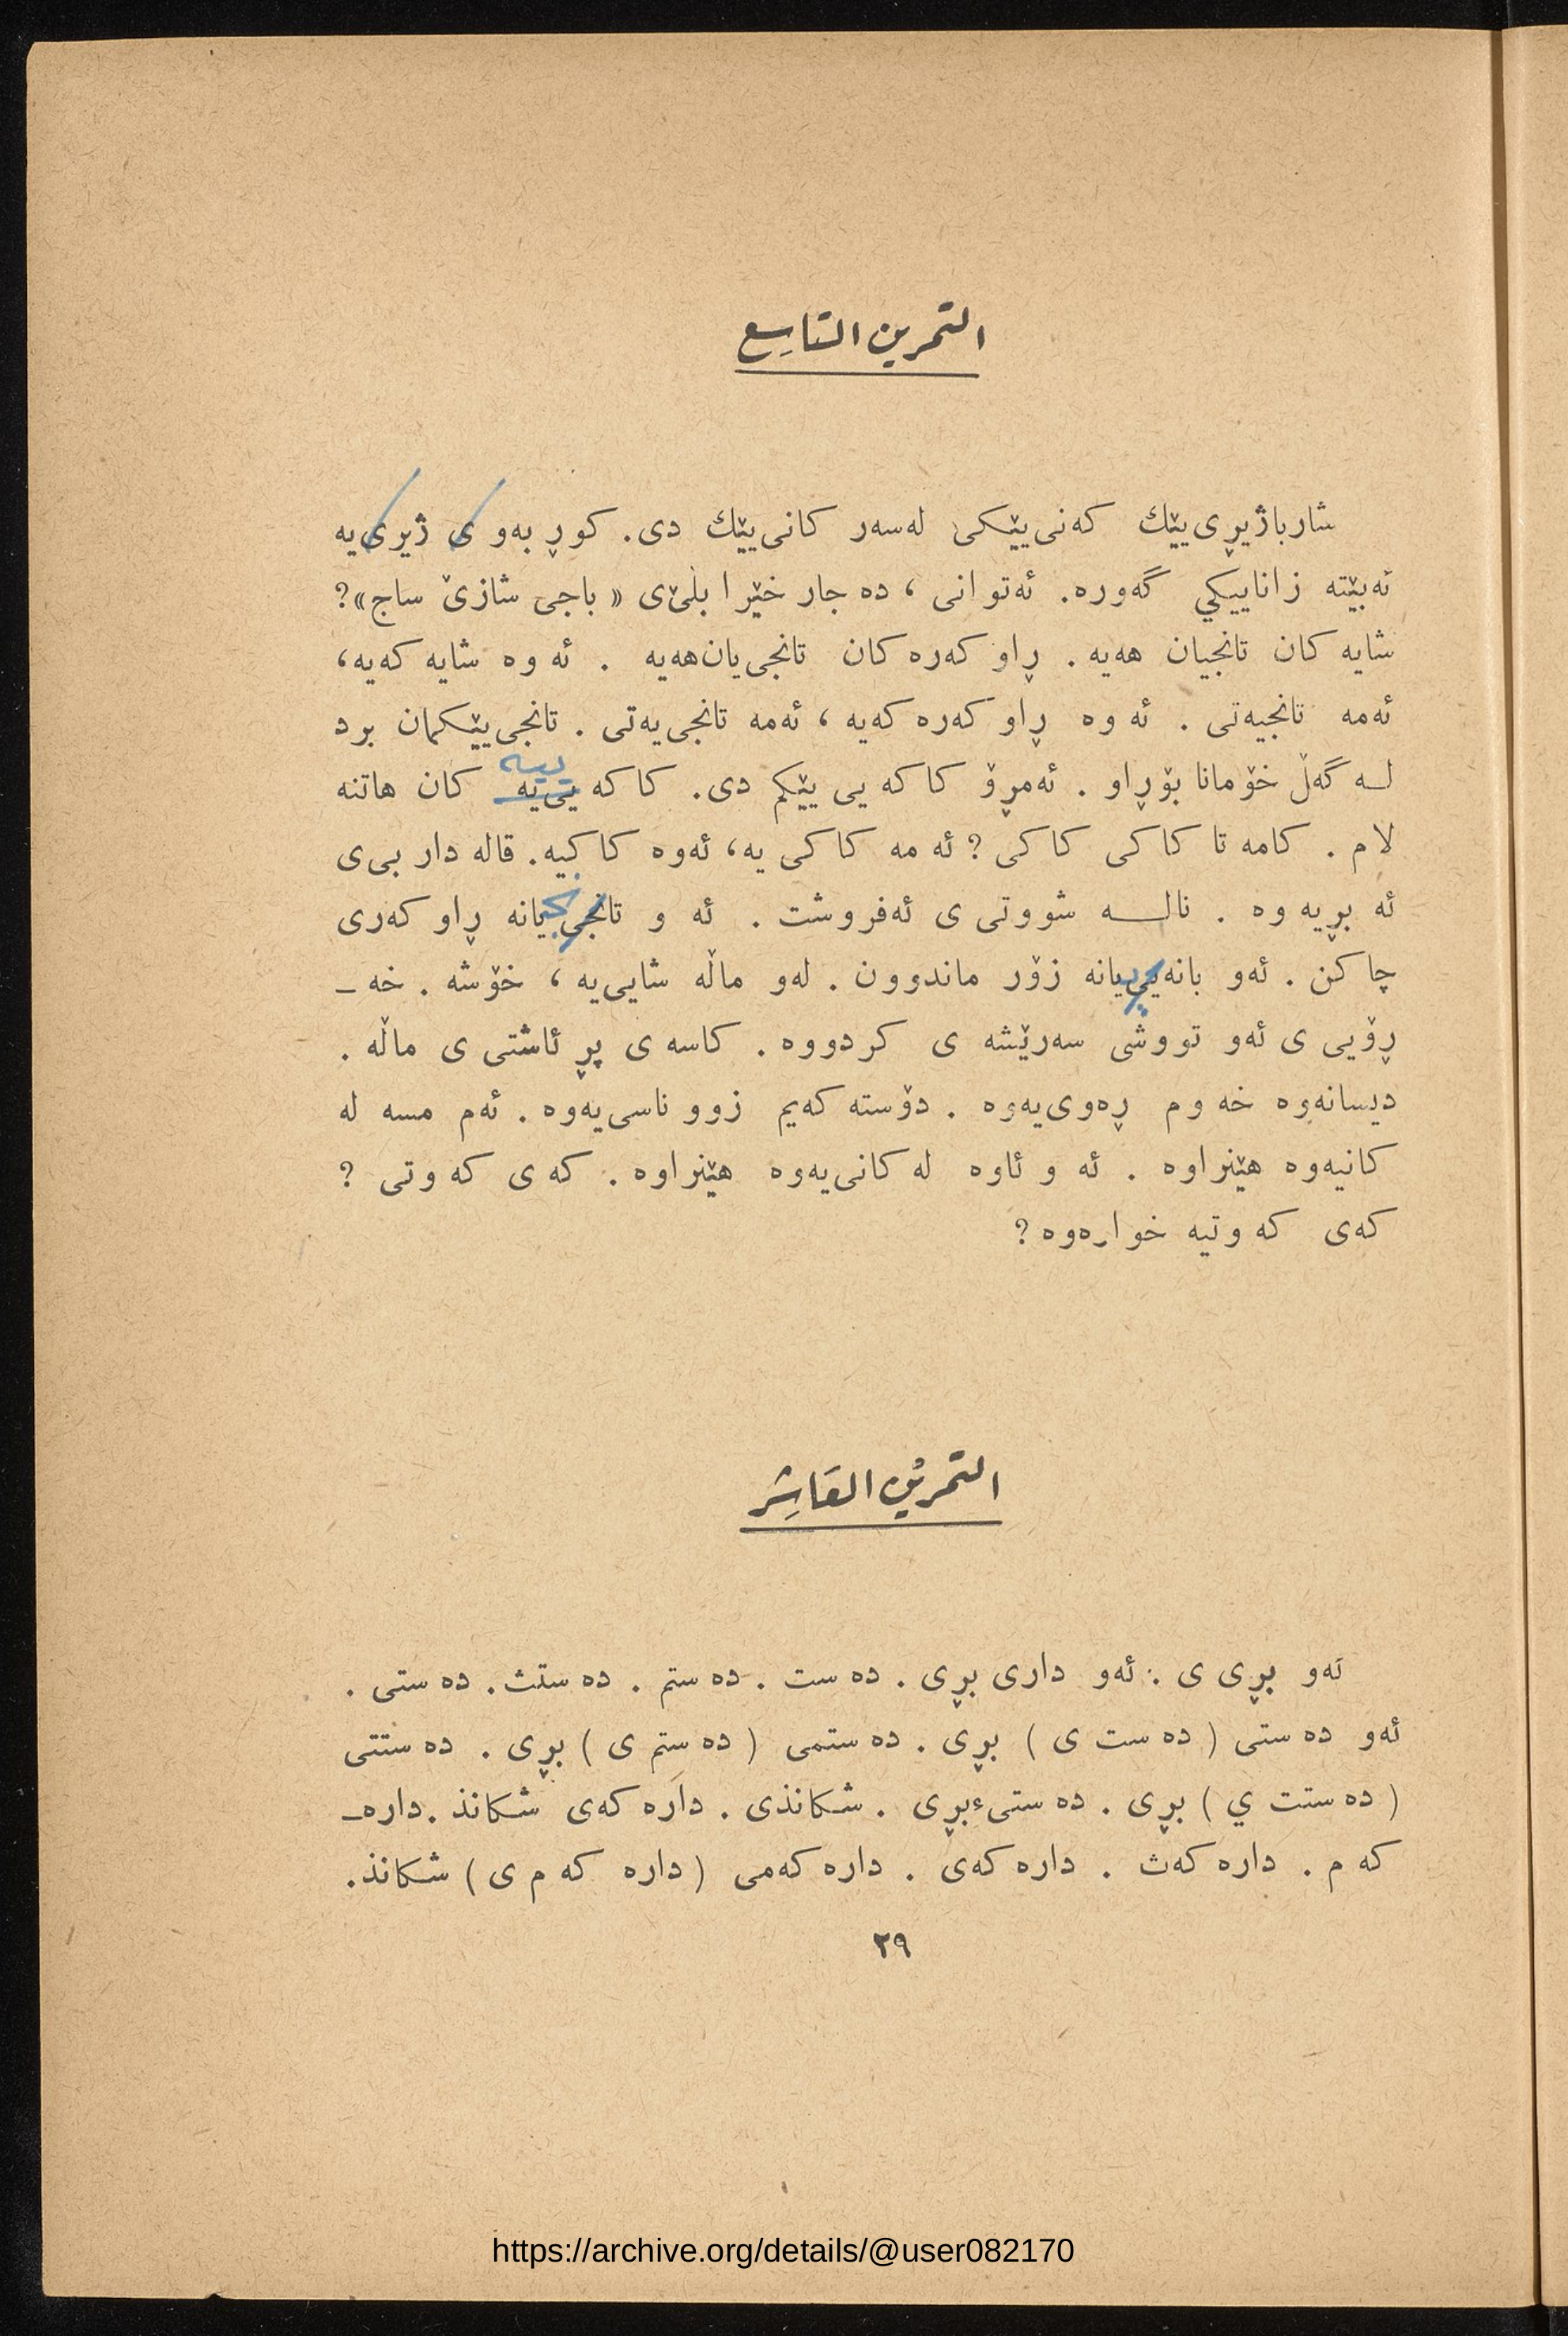 التمرين التاسِع
شارباژیڕی‌یێك کەنی‌یێکی لەسەر کانی‌یێك دی. کوڕ بەو ی ژیری‌یه
ئەبێته زاناییکي گەوره. ئەتوانی ، ده جار خێرا بڵێ‌ی « باجی شازێ ساج»؟
شایه کان تانجیان هەیه . ڕاو کەره کان تانجی‌یان‌هەیه . ئه وه شایه کەیه،
ئەمه تانجیەتی . ئه وه ڕاو کەره کەیه ، ئەمه تانجی‌یەتی . تانجی‌یێکمان برد
لـه گەڵ خۆمانا بۆڕاو . ئەمڕۆ کاکه یی یێکم دی. کاکه یی‌یه ییه کان هاتنه
لام . کامه تا کاکی کاکی ؟ ئه مه کاکی یه، ئەوه کاکیه. قاله دار بی‌ی
ئه بڕیه وه . نالـــه شووتی ی ئەفروشت . ئه و تانجی‌یانه ڕاو کەری
چاکن . ئەو بانەیی‌یانه زۆر ماندوون . لەو ماڵه شایی‌یه ، خۆشه . خه ـ
ڕۆیی ی ئەو تووشی سەرێشه ی کردووه . کاسه ی پڕ ئاشتی ی ماڵه .
دیسانەوه خه وم ڕەوی‌یەوه . دۆسته کەیم زوو ناسی‌یەوه . ئەم مسه له
کانیەوه هێنراوه . ئه و ئاوه له کانی‌یەوه هێنراوه . که ی که وتی ؟
کەی که وتیه خوارەوه ؟
التمريْن العَاشِر
ئەو بڕی ی : ئەو داری بڕی . ده ست . ده ستم . ده ستث. ده ستی .
ئەو ده ستی ( ده ست ی ) بڕی . ده ستمی ( ده ستم ی ) بڕی . ده ستتی
( ده ستت ي ) بڕی . ده ستیء‌بڕی . شکانذی . داره کەی شکانذ . داره‌ـ
که م . داره کەث . داره کەی . داره کەمی (داره که م ی ) شکانذ.
٢٩
https://archive.org/details/@user082170